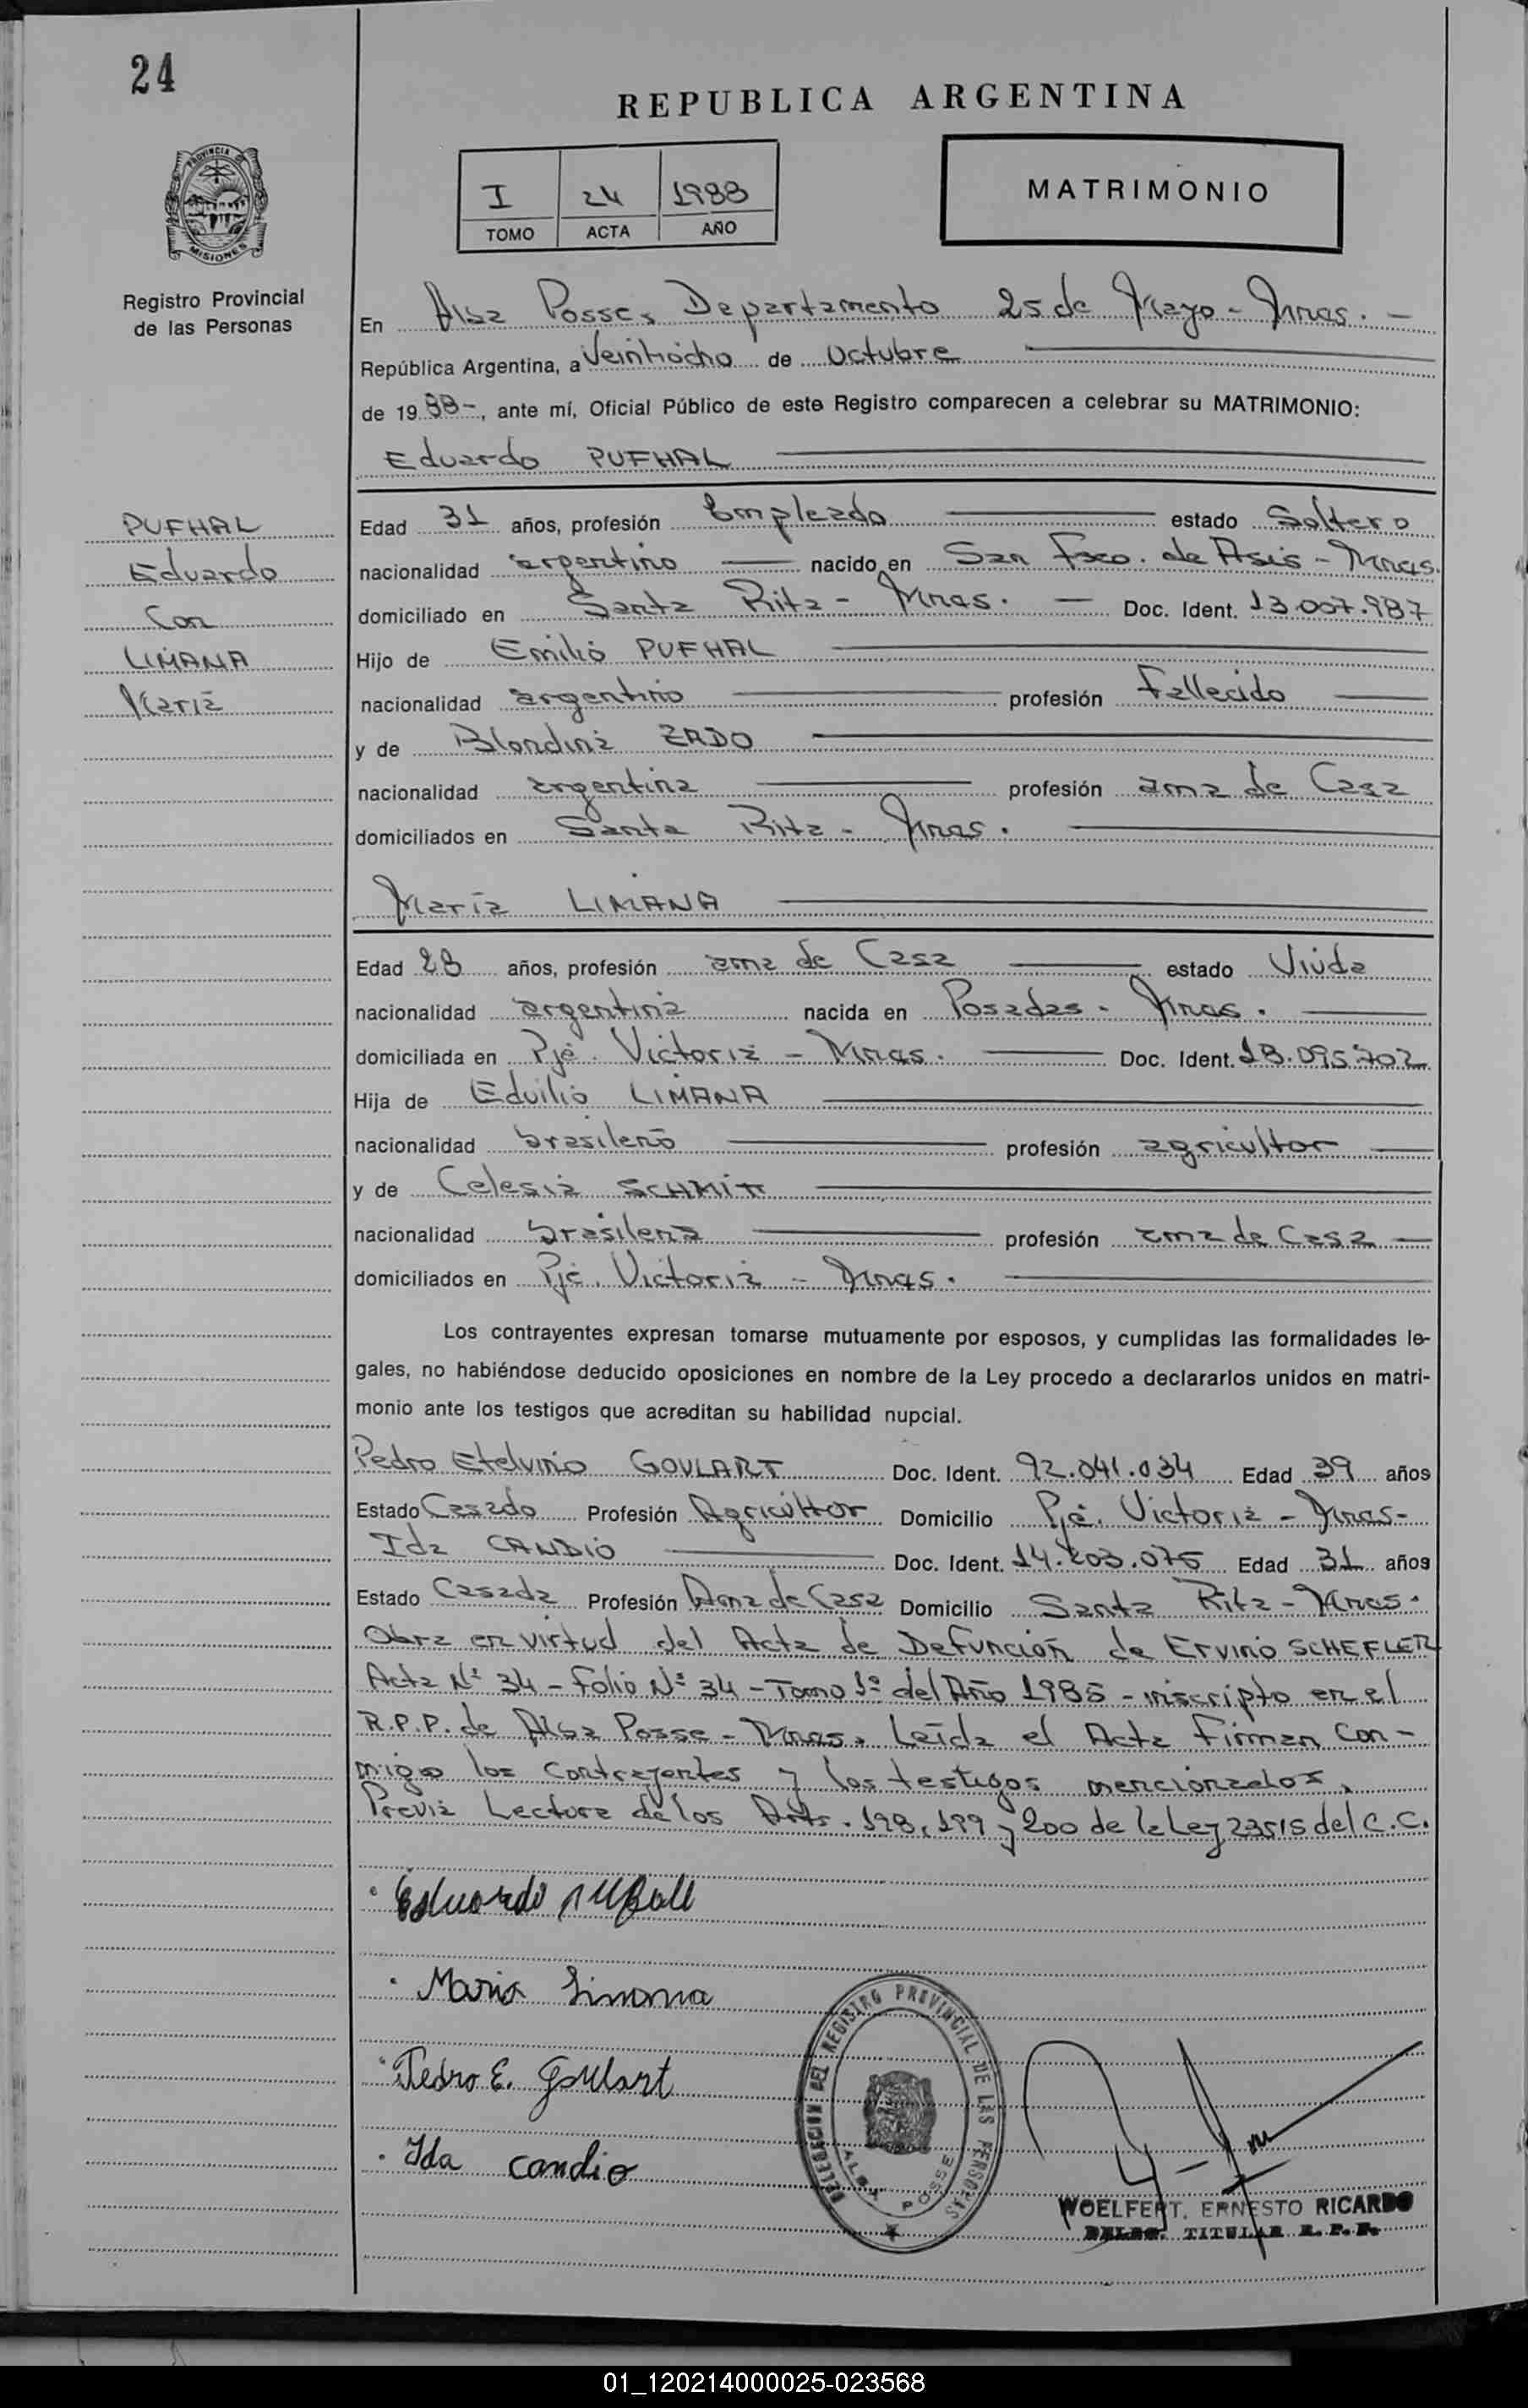 24
REPUBLICA ARGENTINA
PROVINCIA DE MISIONES
Registro Provincial
de las Personas
I 24 1988
TOMO ACTA AÑO
MATRIMONIO
En Alba Posse, Departamento 25 de Mayo - Mnes. -
República Argentina, a Veintiocho de Octubre
de 1988-, ante mí, Oficial Público de este Registro comparecen a celebrar su MATRIMONIO:
Eduardo PUFHAL
PUFHAL
Eduardo
Con
LIMANA
María
Edad 31 años, profesión Empleado estado Soltero
nacionalidad argentino nacido en San Fsco. de Asís - Mnes.
domiciliado en Santa Rita - Mnes. - Doc. Ident. 13.007.987
Hijo de Emilio PUFHAL
nacionalidad argentino profesión Fallecido
y de Blondina ZADO
nacionalidad argentina profesión ama de Casa
domiciliados en Santa Rita - Mnes.
María LIMANA
Edad 28 años, profesión ama de Casa estado Viuda
nacionalidad argentina nacida en Posadas - Mnes.
domiciliada en Pje. Victoria - Mnes. Doc. Ident. 18.095.702
Hija de Eduilio LIMANA
nacionalidad brasileño profesión agricultor
y de Celesia SCHMITT
nacionalidad brasileña profesión ama de Casa
domiciliados en Pje. Victoria - Mnes.
Los contrayentes expresan tomarse mutuamente por esposos, y cumplidas las formalidades le-
gales, no habiéndose deducido oposiciones en nombre de la Ley procedo a declararlos unidos en matri-
monio ante los testigos que acreditan su habilidad nupcial.
Pedro Etelvino GOULART Doc. Ident. 92.041.034 Edad 39 años
Estado Casado Profesión Agricultor Domicilio Pje. Victoria - Mnes-
Ida CANDIO Doc. Ident. 14.203.075 Edad 31 años
Estado Casada Profesión Ama de Casa Domicilio Santa Rita - Mnes.
Obra en virtud del Acta de Defunción de Ervino SCHEFLER
Acta Nº 34 - Folio Nº 34 - Tomo 1º del Año 1985 - inscripto en el
R.P.P. de Alba Posse - Mnes. Leída el Acta Firman Con-
migo los contrayentes y los testigos mencionados,
Previa Lectura de los Arts. 198, 199 y 200 de la Ley 23515 del C.C.
Eduardo
Maria Limana
Pedro E. Goulart
Ida candio
DELEGACION DEL REGISTRO PROVINCIAL DE LAS PERSONAS
ALBA POSSE
WOELFERT, ERNESTO RICARDO
DELEG. TITULAR R. P. P.
01_120214000025-023568